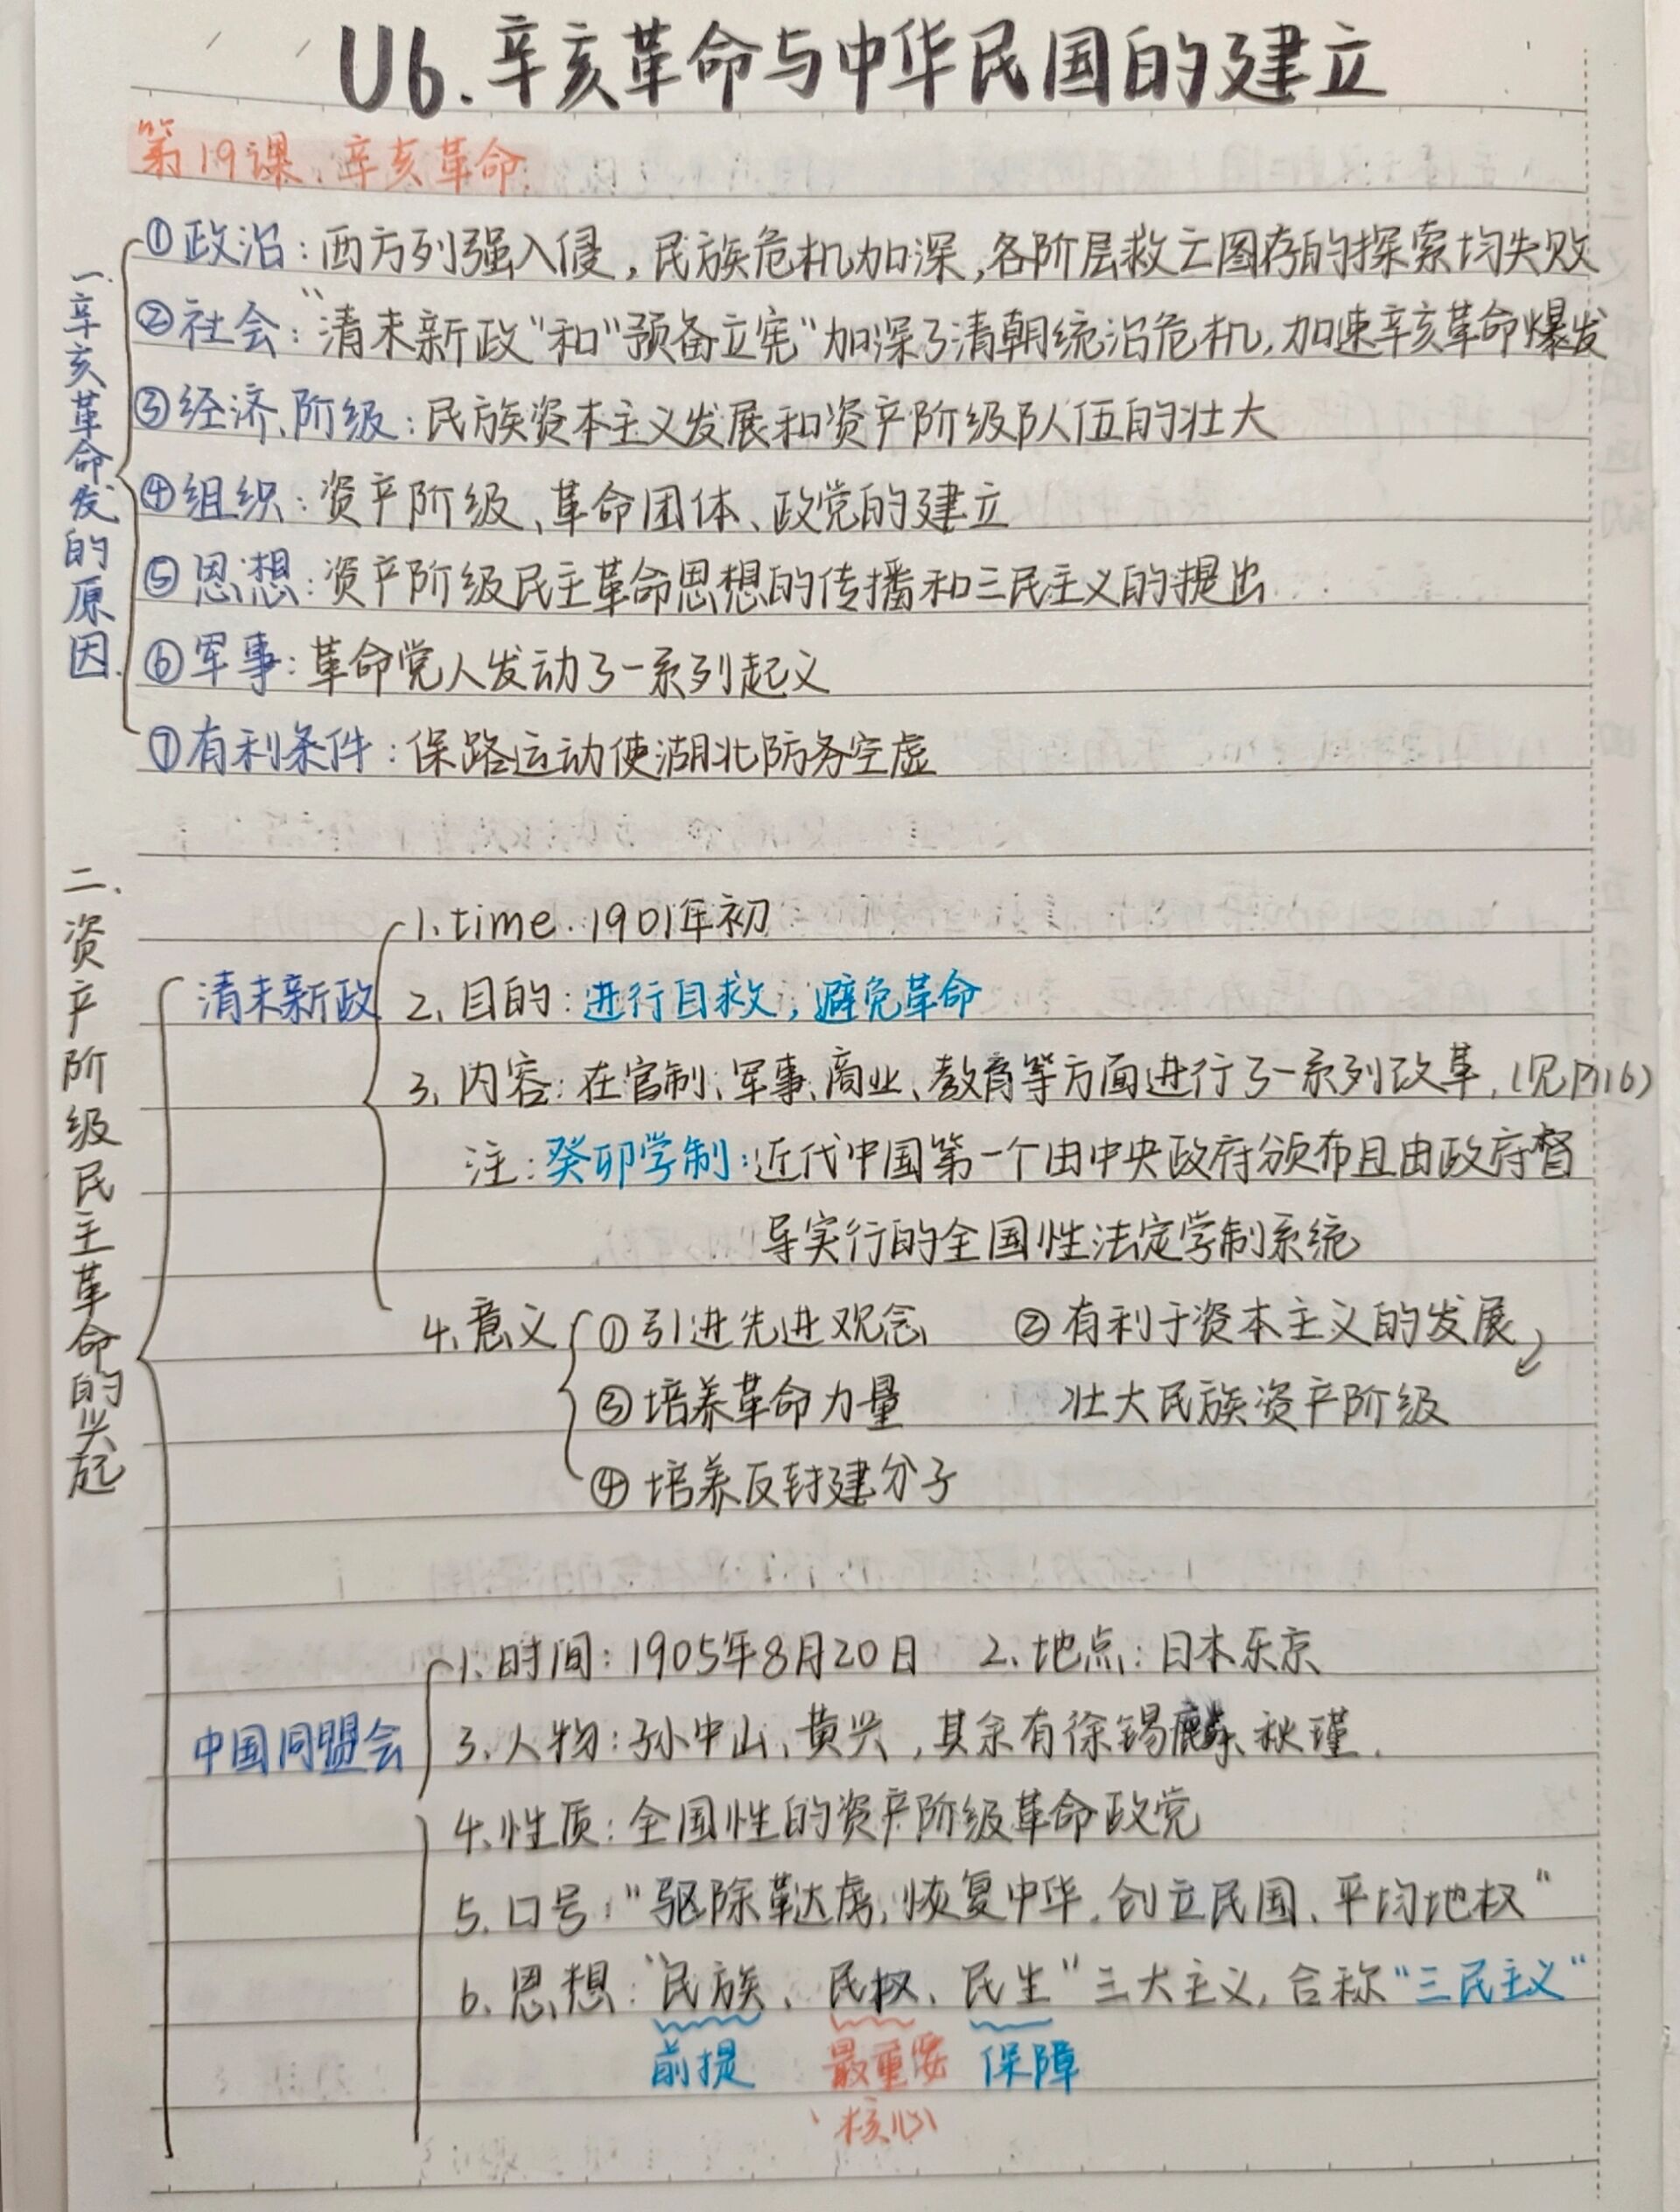 U6.辛亥革命与中华民国的建立
第19课、辛亥革命
一.辛亥革命发的原因.
①政治：西方列强入侵，民族危机加深，各阶层救亡图存的探索均失败
②社会：“清末新政”和“预备立宪”加深了清朝统治危机，加速辛亥革命爆发
③经济、阶级：民族资本主义发展和资产阶级队伍的壮大
④组织：资产阶级、革命团体、政党的建立
⑤思想：资产阶级民主革命思想的传播和三民主义的提出
⑥军事：革命党人发动了一系列起义
⑦有利条件：保路运动使湖北防务空虚
二.资产阶级民主革命的兴起
清末新政
1.time.1901年初
2.目的：进行自救，避免革命
3.内容：在官制、军事、商业、教育等方面进行了一系列改革.(见P116)
注：癸卯学制：近代中国第一个由中央政府颁布且由政府督
导实行的全国性法定学制系统
4.意义 ①引进先进观念 ②有利于资本主义的发展
③培养革命力量 壮大民族资产阶级
④培养反封建分子
中国同盟会
1.时间：1905年8月20日 2.地点：日本东京
3.人物：孙中山、黄兴，其余有徐锡麟、秋瑾.
4.性质：全国性的资产阶级革命政党
5.口号：“驱除鞑虏，恢复中华，创立民国、平均地权”
6.思想：“民族、民权、民生”三大主义，合称“三民主义”
前提 最重要 保障
核心